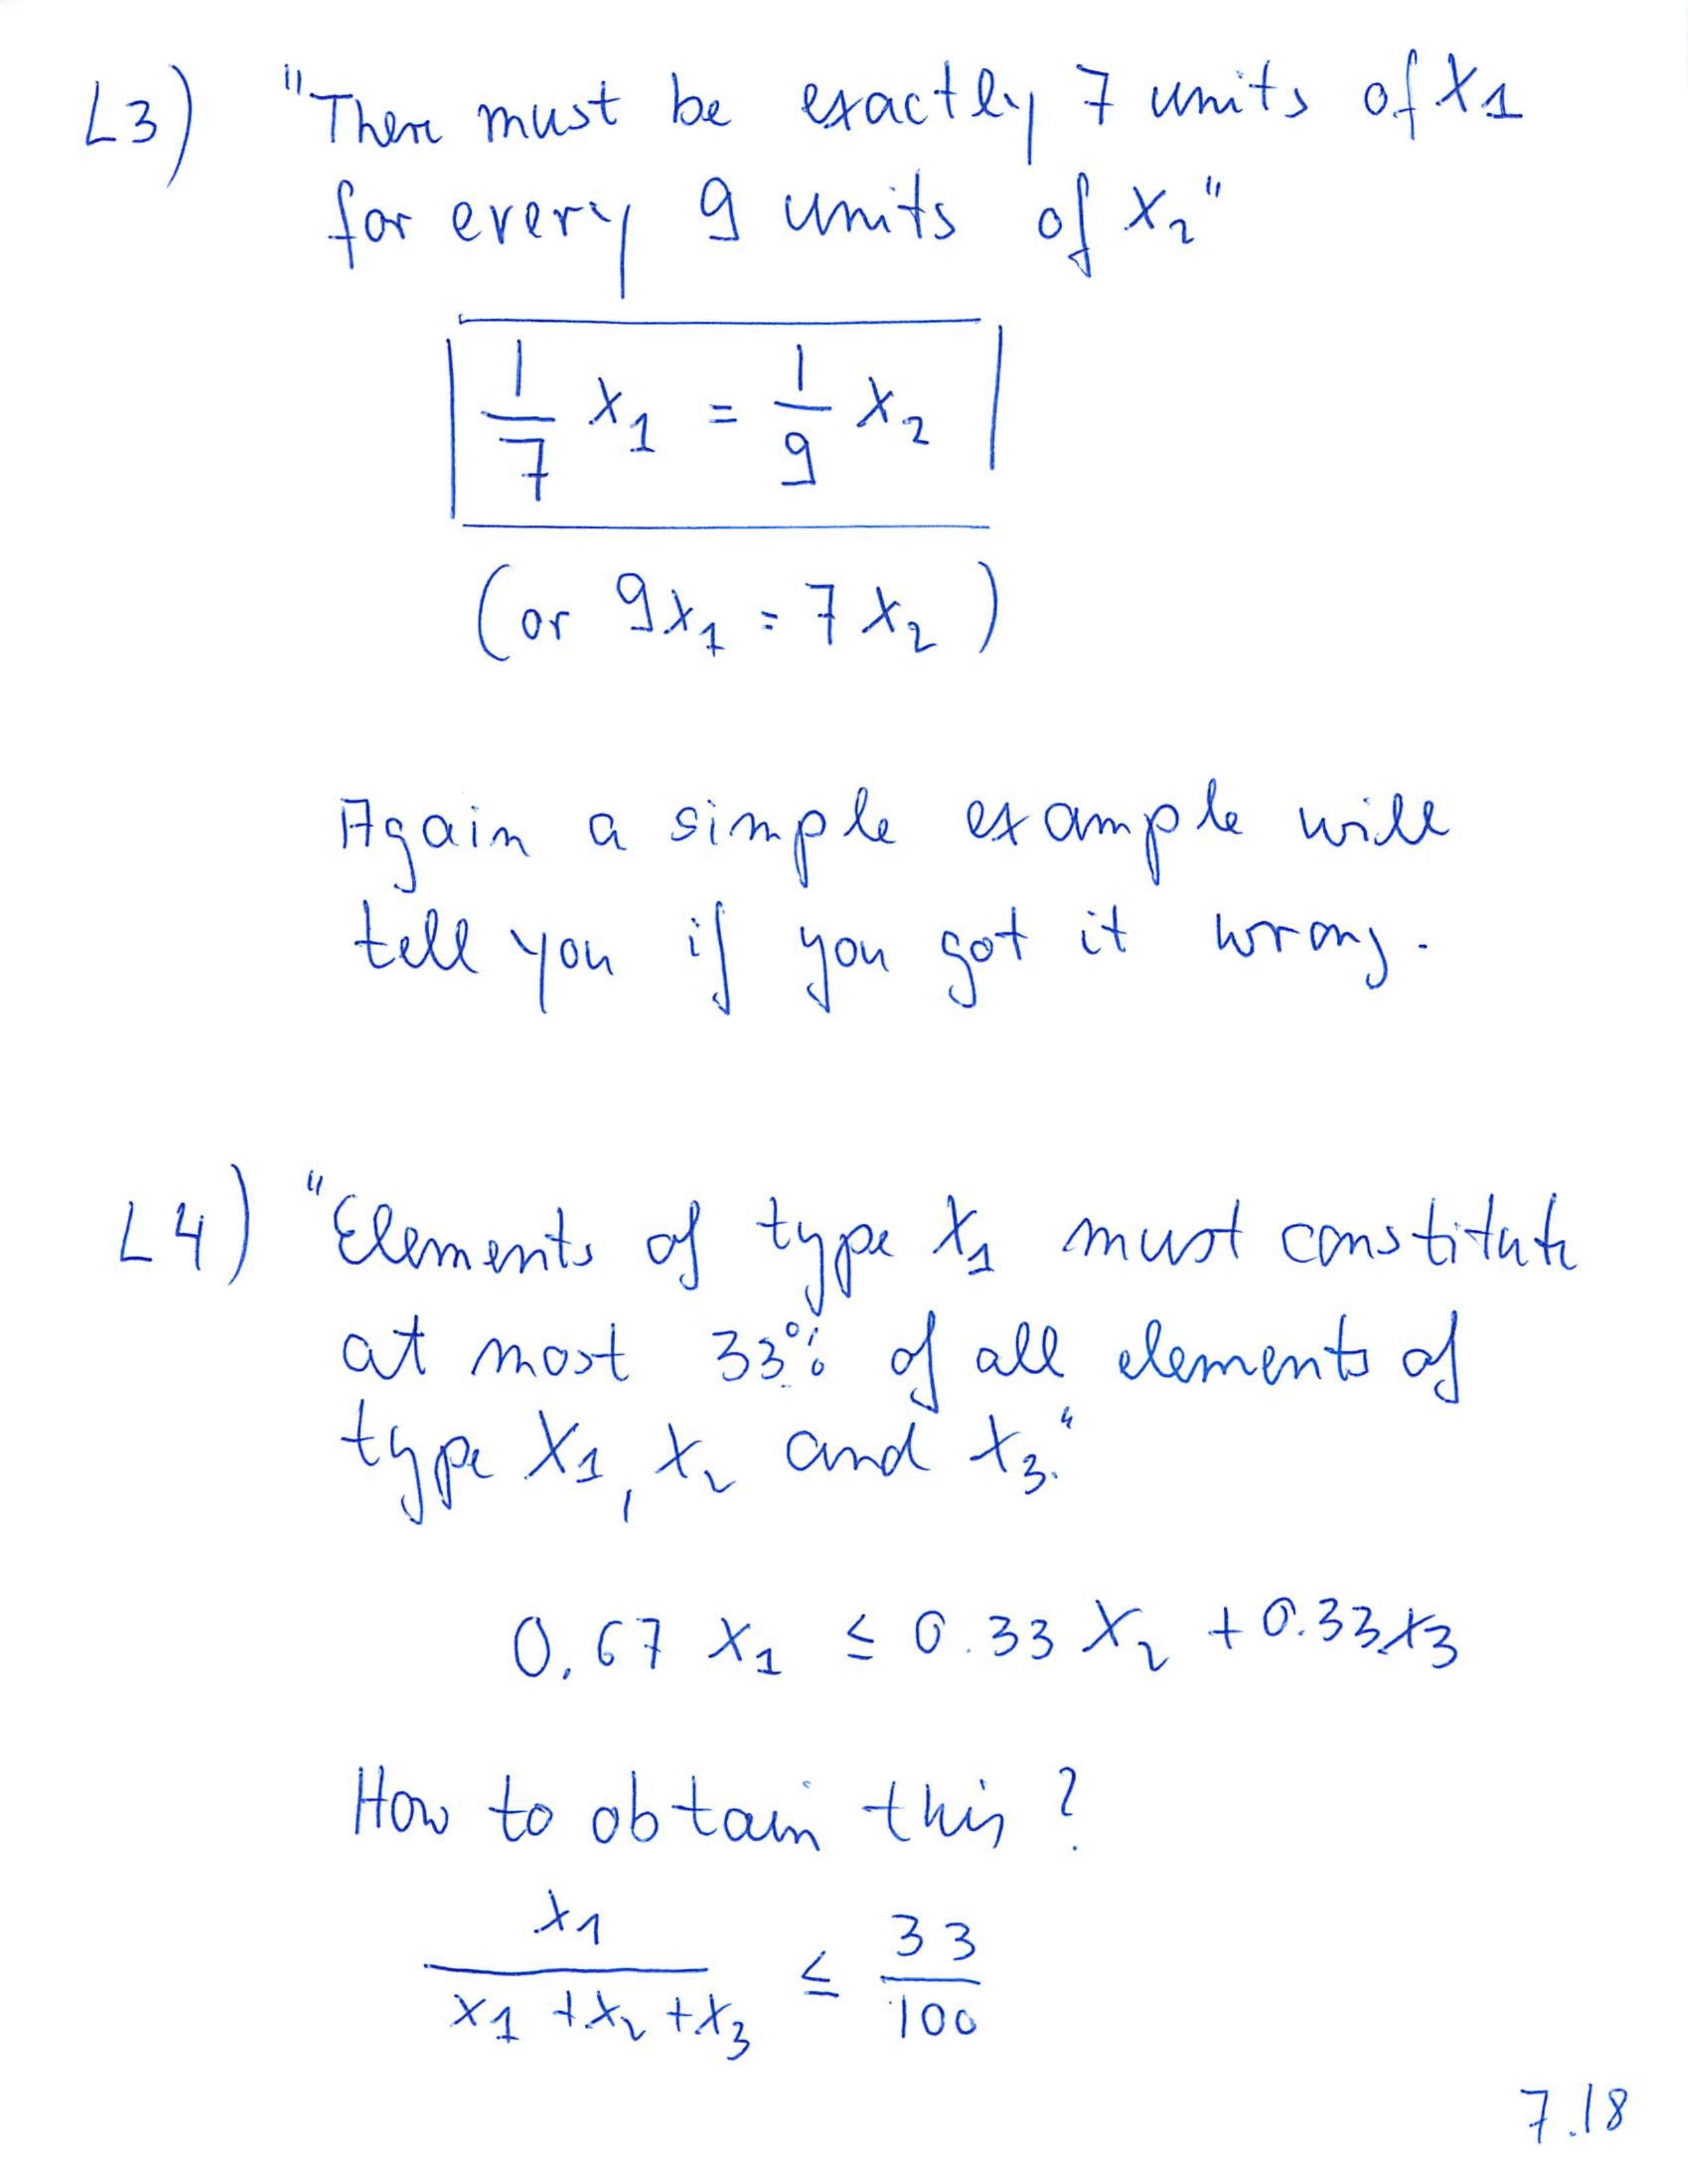 L3) "There must be exactly 7 units of x1
for every 9 units of x2"
1/7 x1 = 1/9 x2
(or 9x1 = 7x2)
Again a simple example will
tell you if you got it wrong.
L4) "Elements of type x1 must constitute
at most 33% of all elements of
type x1, x2 and x3."
0.67 x1 ≤ 0.33 x2 + 0.33x3
How to obtain this?
x1 / (x1 + x2 + x3) ≤ 33/100
7.18